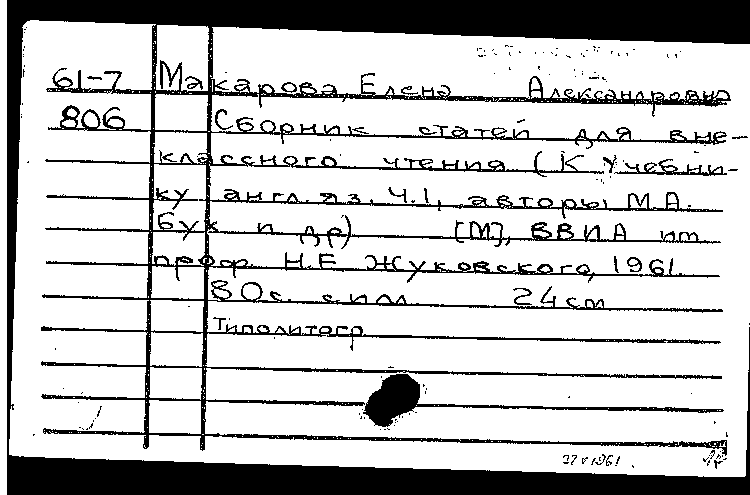 61-7 Макарова, Елена Александровна
806 Сборник статей для вне-
классного чтения (К учебни-
ку англ. яз. Ч.1, авторы М.А.
Бух и др) [М], ВВИА им
проф. Н.Е Жуковского, 1961.
80с. с илл. 24см
Типолитогр